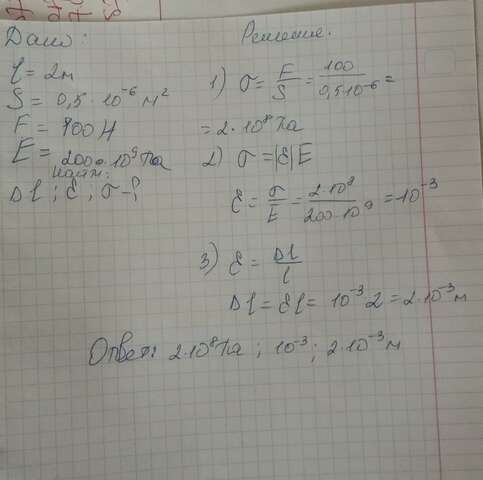 Дано:
l = 2м
S = 0,5 · 10⁻⁶ м²
F = 100 Н
E = 200 · 10⁹ Па
найти:
Δl ; ε ; σ - ?
Решение.
1) σ = F/S = 100/0,5·10⁻⁶ =
= 2 · 10⁸ Па
2) σ = |ε| E
ε = σ/E = 2·10⁸/200·10⁹ = 10⁻³
3) ε = Δl/l
Δl = εl = 10⁻³ 2 = 2·10⁻³ м
Ответ: 2·10⁸ Па ; 10⁻³ ; 2·10⁻³ м